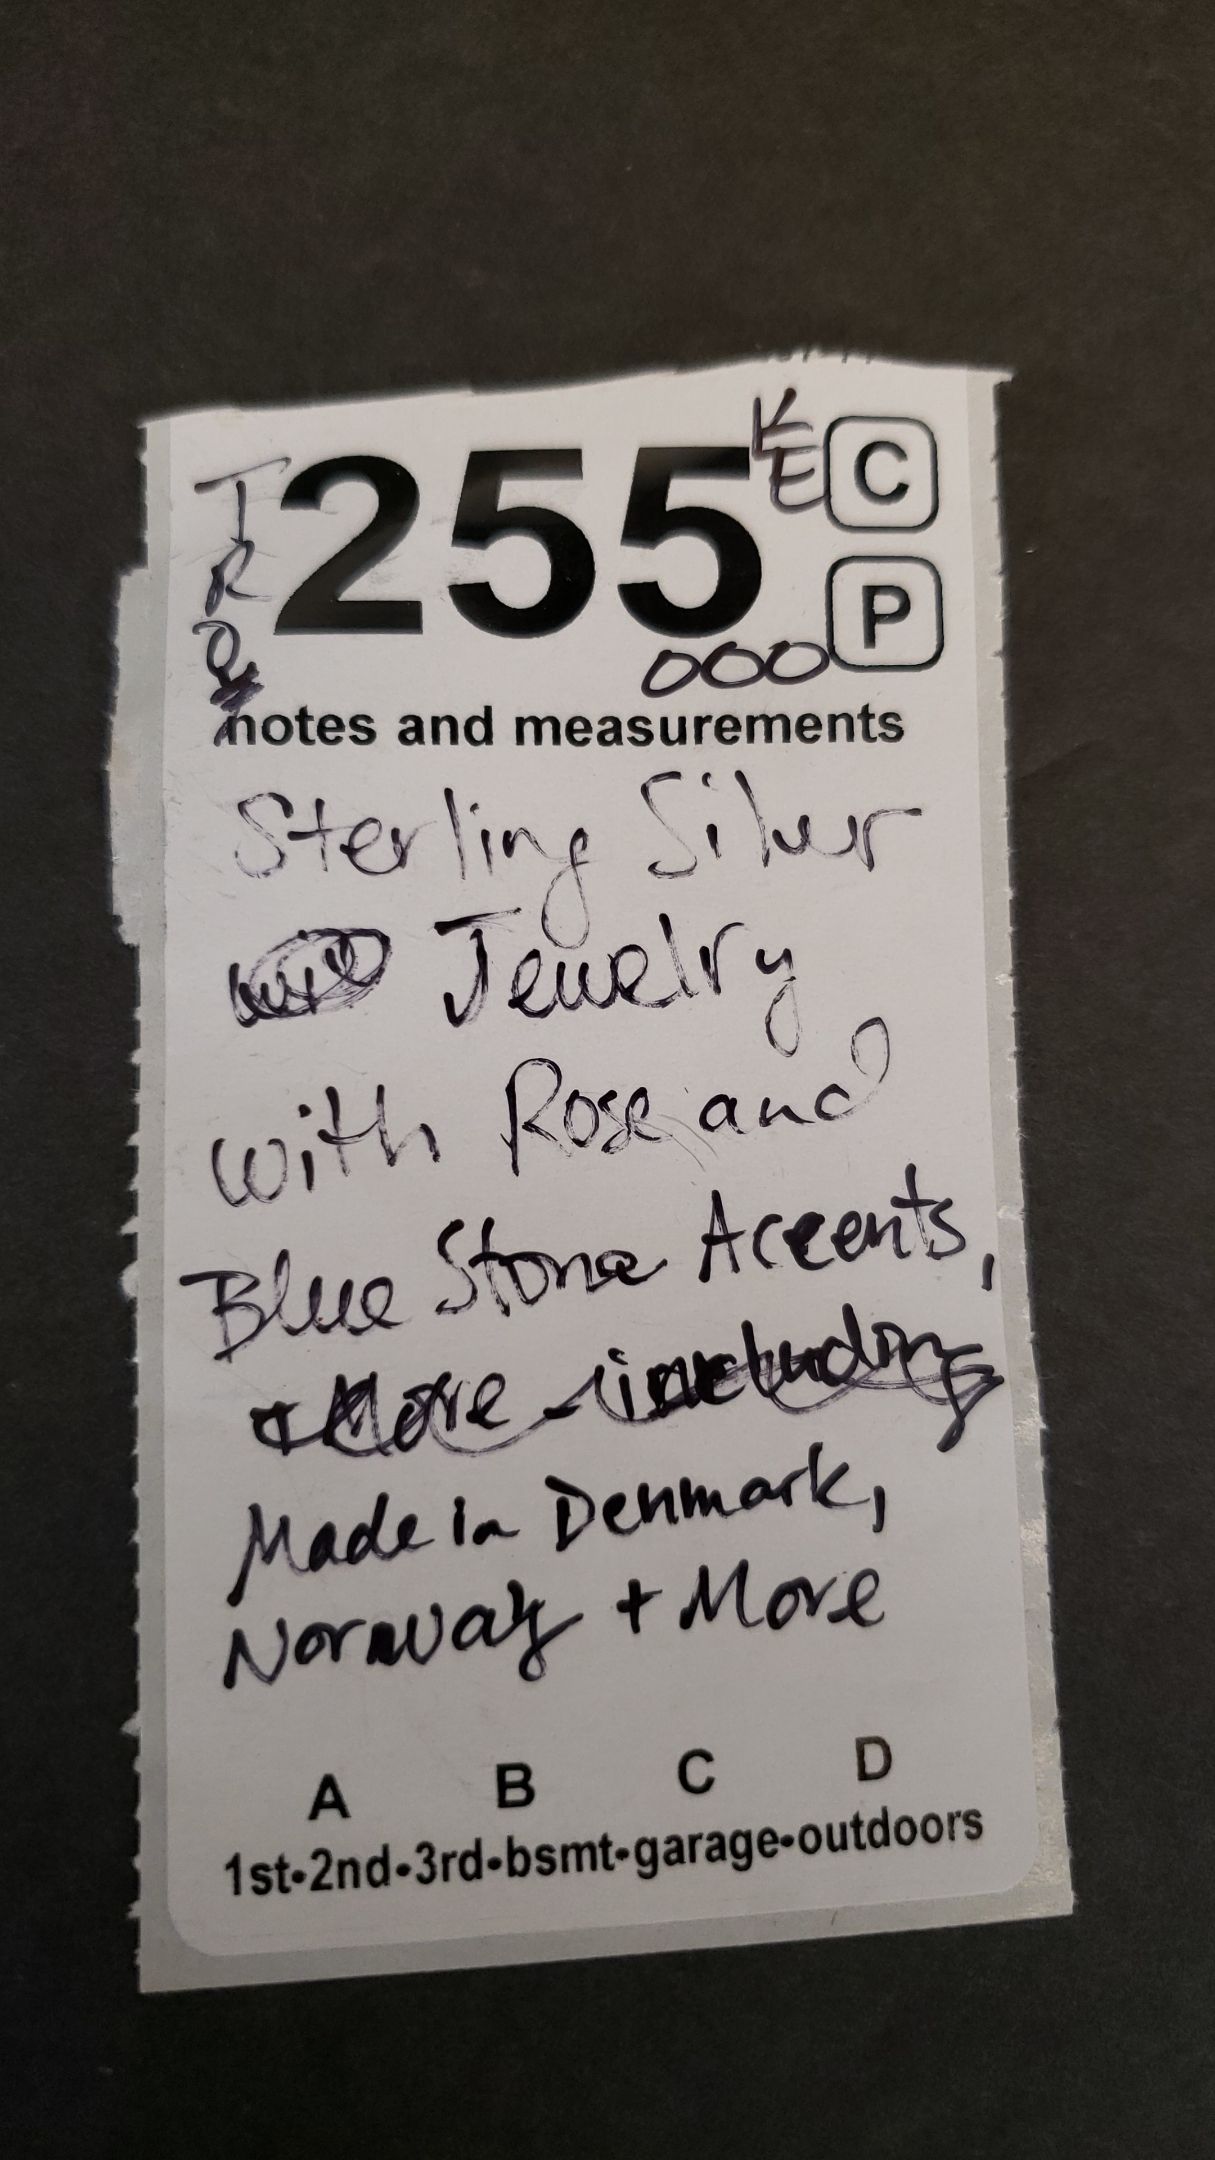 T 255 KE C
R
P
000
notes and measurements
Sterling Silver
Jewelry
with Rose and
Blue Stone Accents,
+ More - including
Made in Denmark,
Norway + More
A B C D
1st•2nd•3rd•bsmt•garage•outdoors